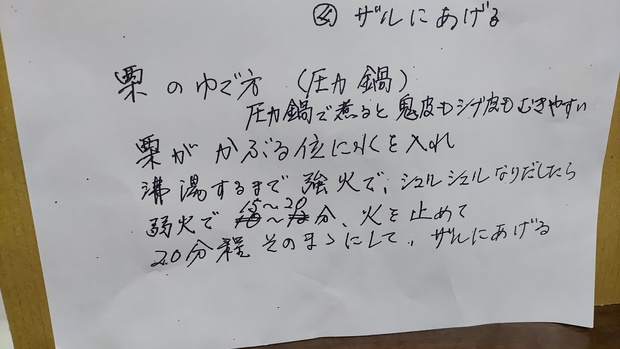 ザルにあげる
栗のゆで方（圧力鍋）
圧力鍋で煮ると鬼皮もシブ皮もむきやすい
栗がかぶる位に水を入れ
沸湯するまで強火で、シュルシュルなりだしたら
弱火で15〜20分、火を止めて
20分程そのまゝにして、ザルにあげる